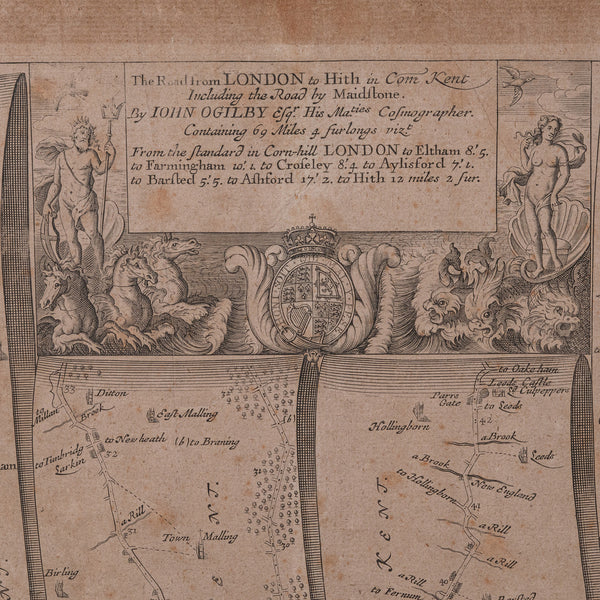 The Road from LONDON to Hith in Com Kent
Including the Road by Maidstone.
By IOHN OGILBY Esqr. His Maties Cosmographer.
Containing 69 Miles 4 furlongs vizt.
From the standard in Corn-hill LONDON to Eltham 8'. 5.
to Farmingham 10'. 1. to Croseley 8'. 4. to Aylisford 7'. 1.
to Barsted 5'. 5. to Ashford 17'. 2. to Hith 12 miles 2 fur.
33
Ditton
to Millan
a Brook
East Malling
to Newheath
(b) to Braning
(b)
to Tunbridg
Larkin
32
a Rill
31
Town Malling
30
KENT.
Birling
to Oakeham
Leeds Castle
Culpepper
Parre Gate
to Leeds
Hollingborn
42
a Brook
Leeds
a Brook
to Hollingborn
New England
41
a Rill
a Rill
KENT.
40
to Fernum
Barsted